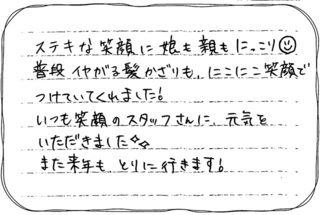 ステキな笑顔に娘も親もにっこり☺
普段イヤがる髪かざりも、にこにこ笑顔で
つけていてくれました!
いつも笑顔のスタッフさんに、元気を
いただきました✧✧
また来年も とりに行きます!